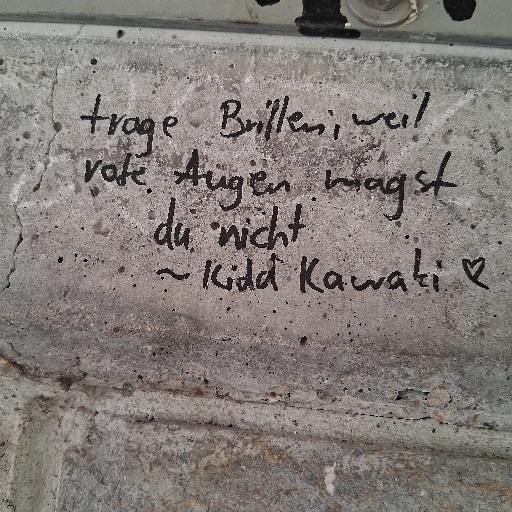 trage Brillen, weil
rote Augen magst
du nicht
~ Kidd Kawaki ♡